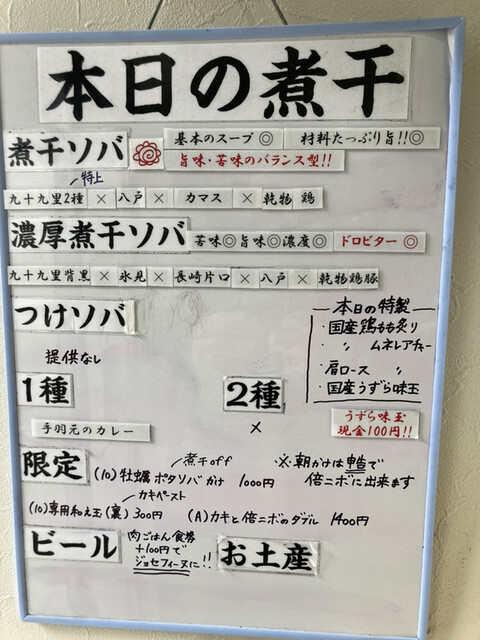 本日の煮干
煮干ソバ 基本のスープ◎ 材料たっぷり旨!!◎
旨味・苦味のバランス型!!
特上
九十九里2種 × 八戸 × カマス × 乾物 鶏
濃厚煮干ソバ 苦味◎旨味◎濃度◎ ドロビター◎
九十九里背黒 × 氷見 × 長崎片口 × 八戸 × 乾物鶏豚
つけソバ
提供なし
本日の特製
・国産鶏もも炙り
・〃 ムネレアチャー
・肩ロース 〃
・国産うずら味玉
うずら味玉
現金100円!!
1種 2種
手羽元のカレー ×
限定
煮干off
(10)牡蠣ポタソバかけ 1000円
※朝かけは申告で
倍ニボに出来ます
カキペースト
(10)専用和え玉(裏)300円 (A)カキと倍ニボのダブル 1400円
ビール
肉ごはん食券
+100円で
ジョセフィーヌに!!
お土産